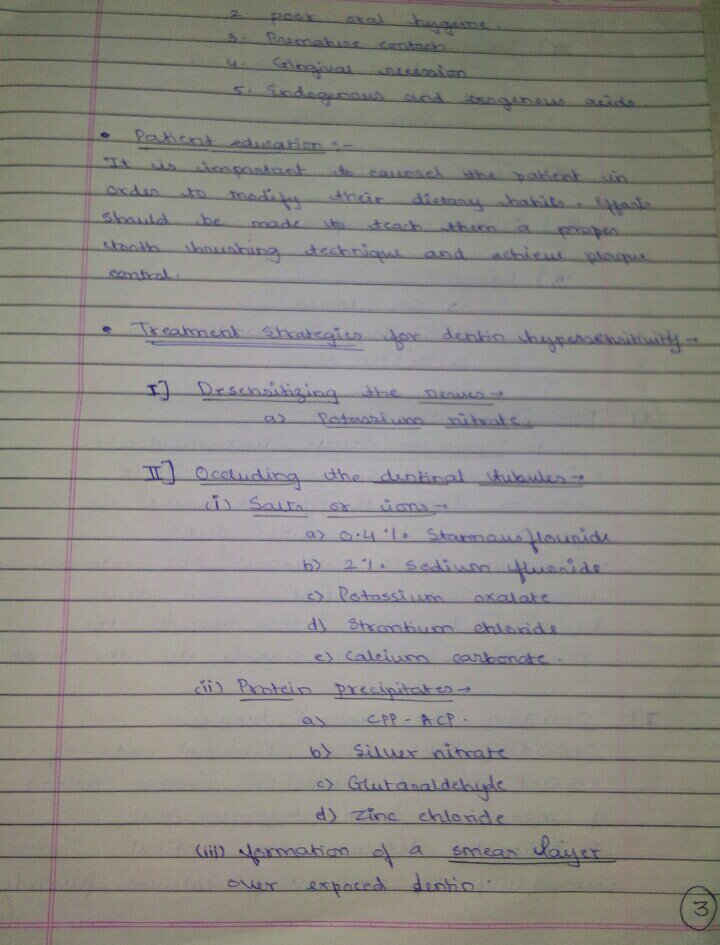 2. poor oral hygeine.
3. Premature contact.
4. Gingival recession
5. Endogenous and exogenous acids.
• Patient education :-
It is important to counsel the patient in
order to modify their dietary habits. Efforts
should be made to teach them a proper
tooth brushing technique and achieve plaque
control.
• Treatment strategies for dentin hypersensitivity →
I] Desensitizing the nerves →
a) Potassium nitrate.
II] Occluding the dentinal tubules →
(i) Salts or ions →
a) 0.4 % Stannous flouride
b) 2 %. Sodium fluoride
c) Potassium oxalate
d) Strontium chloride
e) Calcium carbonate.
(ii) Protein precipitates →
a) CPP - ACP.
b) Silver nitrate
c) Glutaraldehyde
d) Zinc chloride
(iii) formation of a smear layer
over exposed dentin.
3